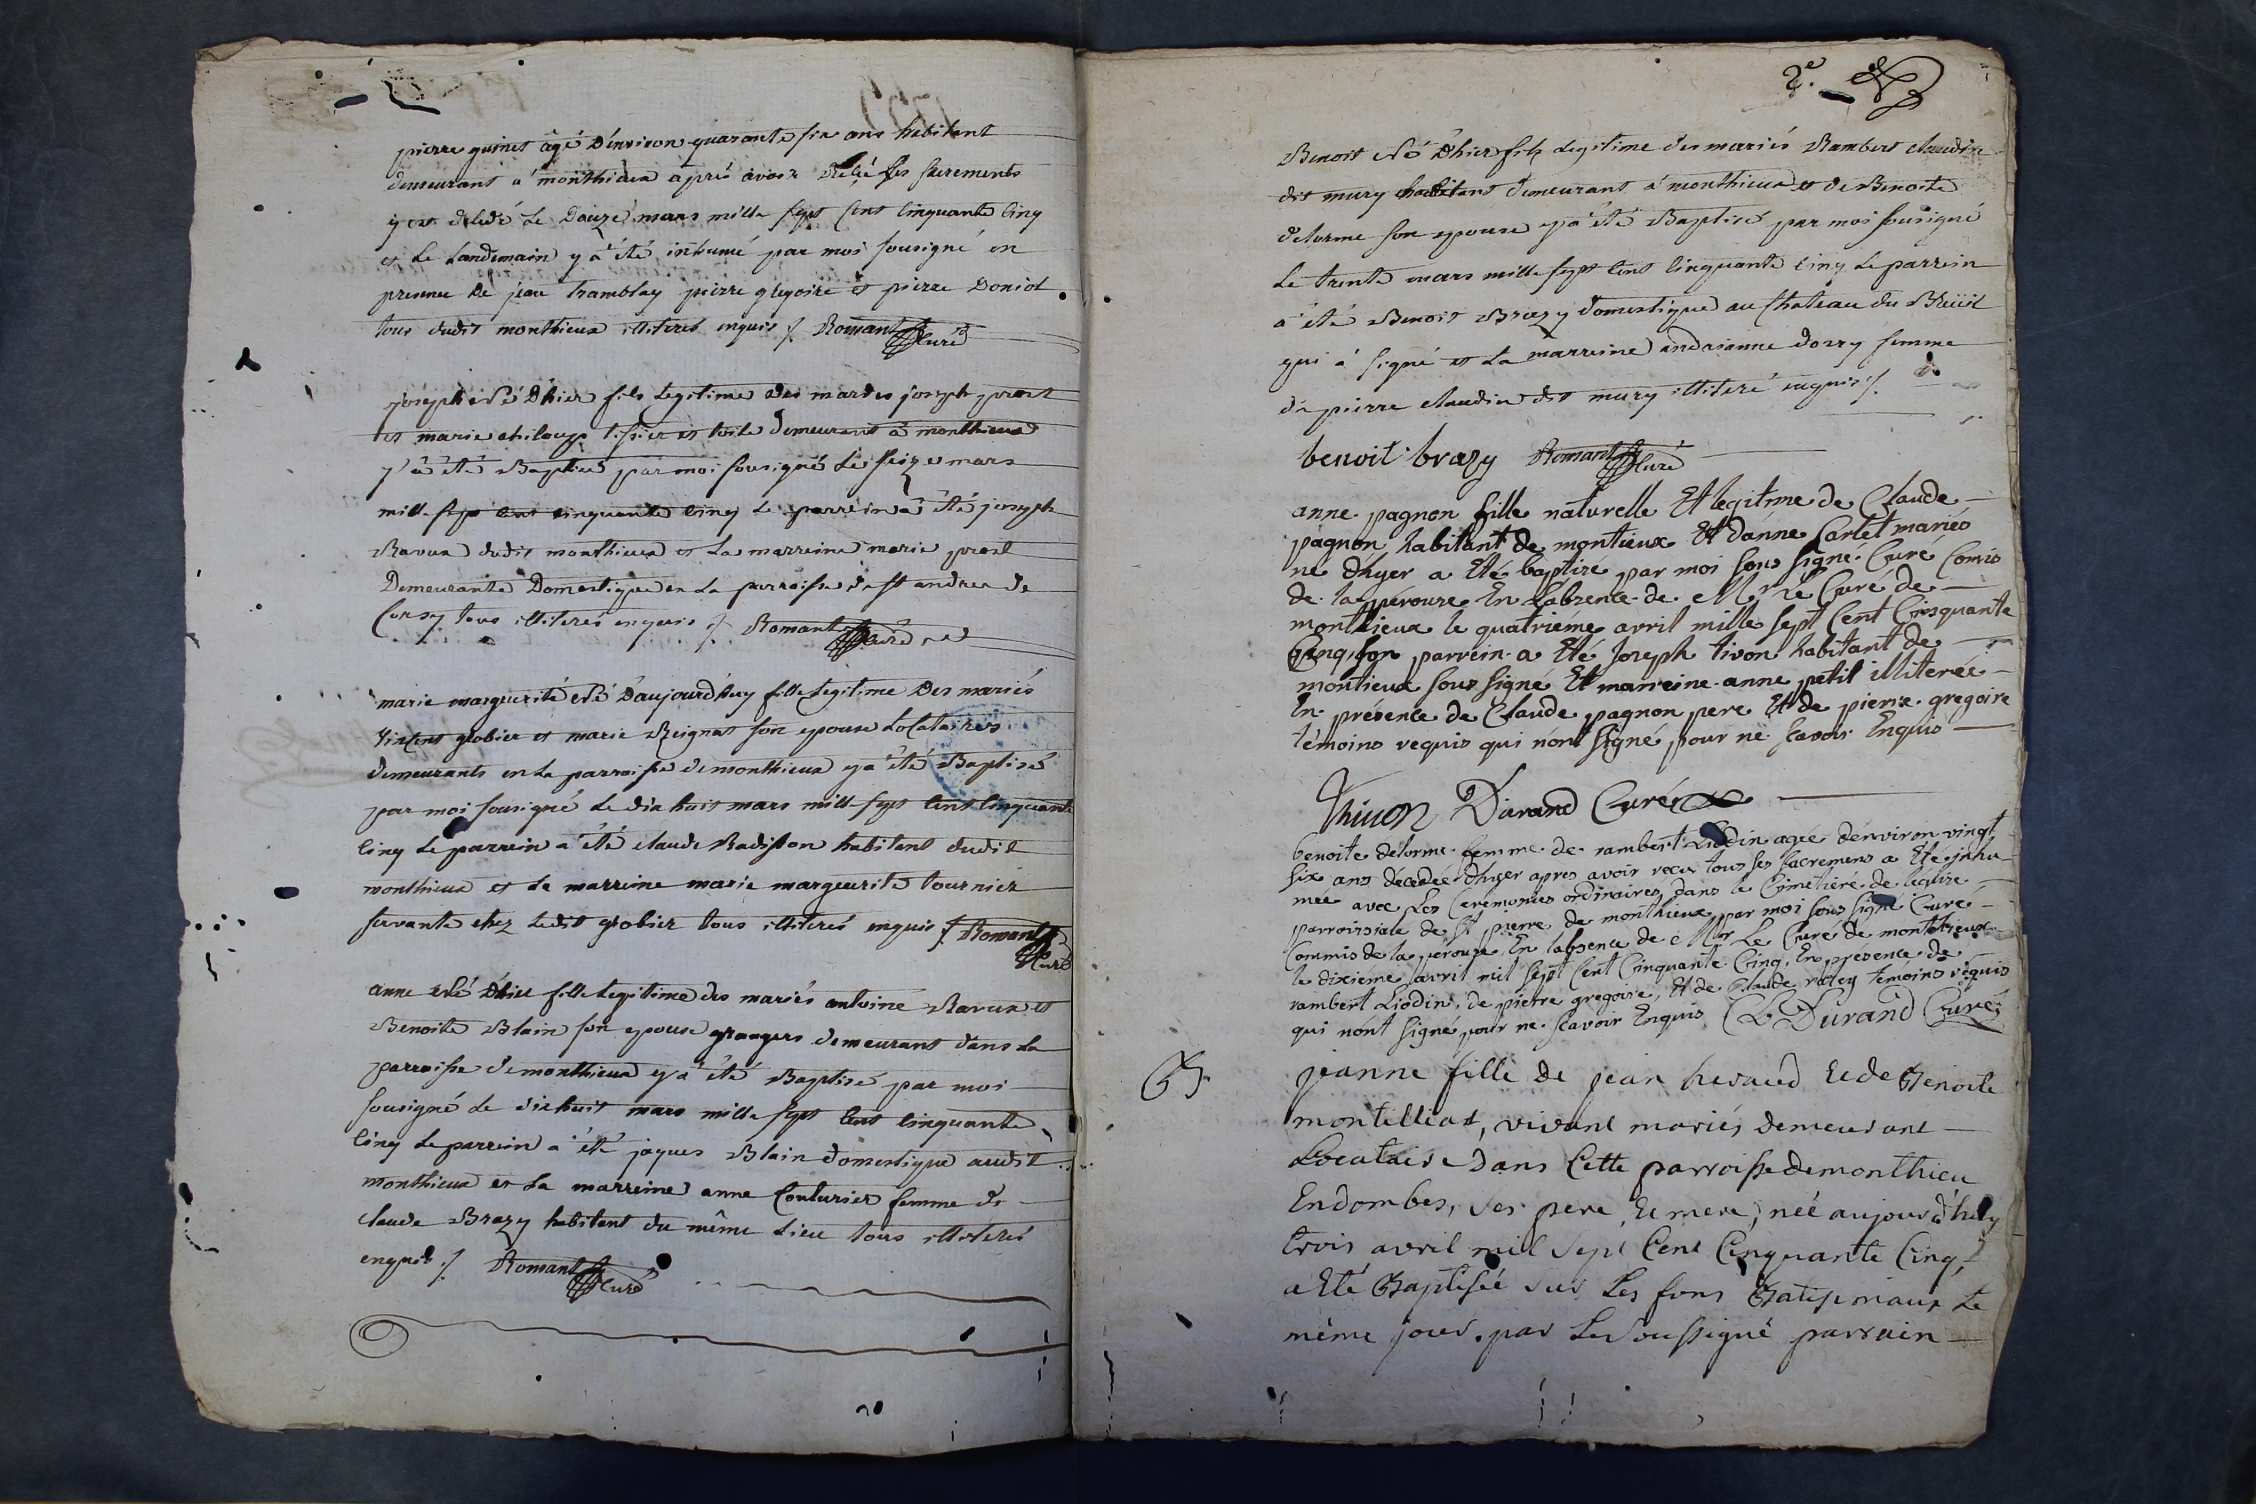 pierre guinet agé d'environ quarante six ans habitant
demeurant a monthieux aprés avoir reçu ses sacrements
y est décédé le douze mars mille sept cent cinquante cinq
et le landemain y a été inhumé par moi sousigné en
presence de jean tramblay pierre gregoire et pierre Doniol
tous dudit monthieux illiterés enquis ./. Romant Curé
joseph né d'hier fils legitime des mariés joseph prost
et marie chiloup demeurant à monthieux
y a été Baptisé par moi sousigné le seize mars
mille sept cent cinquante cinq le parrein a été joseph
Ravux dudit monthieux et la marreine marie prost
Demeurante Domestique en la parroisse de st andrea de
Corsy tous illiterés enquis ./. Romant Curé
marie marguerite né d'aujourd'huy fille legitime des mariés
vincent grobier et marie Reignat son epouse Locataires
demeurants en la parroisse de monthieux y a été Baptisé
par moi sousigné le dix huit mars mill sept cent cinquante
cinq le parrein a été claude Radisson habitant dudit
monthieux et la marreine marie margeurite tournier
servante chez ledit grobier tous illiterés enquis ./. Romant
Curé
anne né d'hier fille legitime des mariés antoine Ravux et
Benoite Blain son epouse grangers demeurant dans la
parroisse de monthieux y a été Baptisé par moi
sousigné le dix huit mars mille sept cent cinquante
cinq le parrein a été jaques Blain domestique audit
monthieux et la marreine anne Couturier femme de
claude Brazy habitant du même lieu tous illiterés
enquis ./. Romant Curé
2e.
Benoit né d'hier fils legitime des mariés Rambert claudin
dit mury habitant demeurant a monthieux et de Benoite
delorme son epouse y a été Baptisé par moi sousigné
le trente mars mille sept cent cinquante cinq le parrein
a été Benoit Brazy domestique au chateau du Breüil
qui a signé et la marreine andrianne dorry femme
de pierre claudin dit mury illiteré enquis ./.
benoit brazy Romant Curé
anne pagnon fille naturelle Et legitime de Claude
pagnon habitant de montieux Et d'anne Carlet mariés
ne d'hyer a Eté baptize par moi sous signe Curé Comis
de la pérouze En l'absence de Mr le Curé de
monthieux le quatrieme avril mille sept Cent Cinquante
Cinq, son parrein a Eté Joseph tivon habitant de
montieux sous signé Et marreine anne petit illiterée
En présence de Claude pagnon pere Et de pierre gregoire
témoins requis qui n'ont signé pour ne scavoir Enquis
Thivon Durand Curé
benoite delorme femme de rambert Liodin agée d'environ vingt
six ans décédée d'hyer apres avoir recu tous ses sacremens a Eté inhu-
mée avec Les Ceremonies ordinaires dans le Cimetiére de l'eglize
parroissiale de St pierre de monthieux par moi sous signé Curé
Commis de la pérouze En l'absence de Mr Le Curé de monthieux
le dixiéme avril mil sept Cent Cinquante Cinq, En présence de
rambert Liodin, de pierre gregoire, Et de Claude ratey temoins requis
qui nont signé pour ne scavoir Enquis Durand Curé
B.
jeanne fille de jean heraud Et de Benoite
montelliat, vivant mariés demeurant
Locataire dans Cette parroisse de monthieu
En dombes, ses pere, Et mere, née aujourd'huy
trois avril mil sept Cent Cinquante Cinq,
a Eté Baptisée sur Les fons Batismaux le
même jour, par Le soussigné parrain